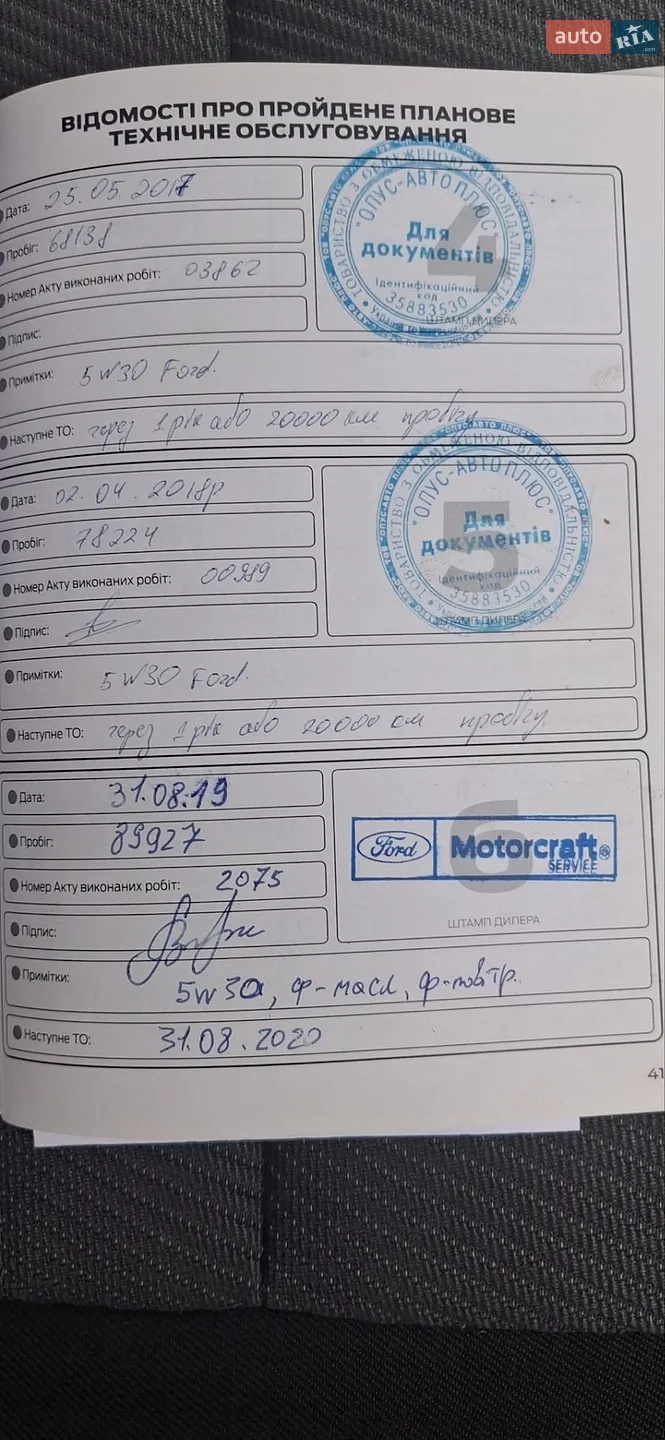 auto RIA .com
ВІДОМОСТІ ПРО ПРОЙДЕНЕ ПЛАНОВЕ
ТЕХНІЧНЕ ОБСЛУГОВУВАННЯ
Дата: 25.05.2017
Пробіг: 68138
Номер Акту виконаних робіт: 03862
Підпис:
4
ТОВАРИСТВО З ОБМЕЖЕНОЮ ВІДПОВІДАЛЬНІСТЮ
"ОПУС-АВТО ПЛЮС"
Для
документів
Ідентифікаційний
код
35883530
ШТАМП ДИЛЕРА
Примітки: 5W30 Ford.
Наступне ТО: через 1 рік або 20000 км пробігу
Дата: 02.04.2018р
Пробіг: 78224
Номер Акту виконаних робіт: 00989
Підпис:
5
ТОВАРИСТВО З ОБМЕЖЕНОЮ ВІДПОВІДАЛЬНІСТЮ
"ОПУС-АВТО ПЛЮС"
Для
документів
Ідентифікаційний
код
35883530
ШТАМП ДИЛЕРА
Примітки: 5W30 Ford.
Наступне ТО: через 1 рік або 20000 км пробігу.
Дата: 31.08.19
Пробіг: 89927
Номер Акту виконаних робіт: 2075
Підпис:
6
Ford Motorcraft®
SERVICE
ШТАМП ДИЛЕРА
Примітки: 5w30, ф-масл, ф-повтр.
Наступне ТО: 31.08.2020
41